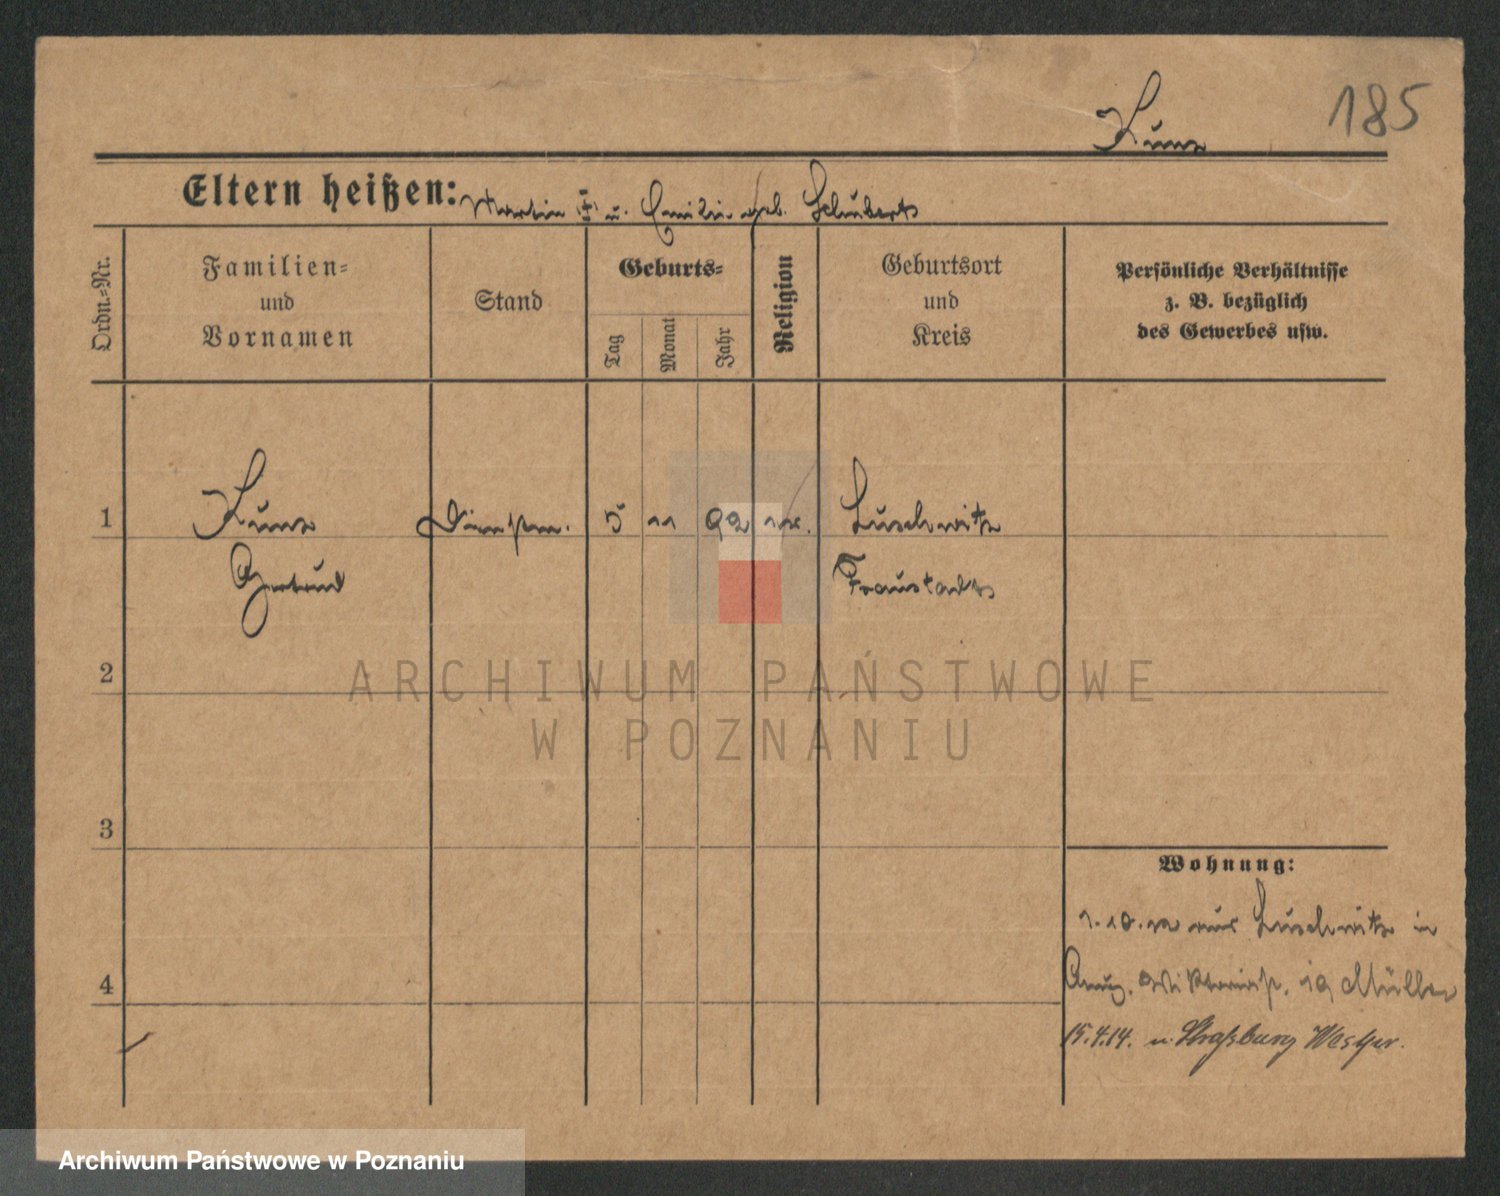 185
Kunz
Eltern heißen: Martin † u. Emilie geb. Schubert
Ordn.-Nr.
Familien- und Vornamen
Stand
Geburts-
Tag
Monat
Jahr
Religion
Geburtsort und Kreis
Persönliche Verhältnisse
z. B. bezüglich
des Gewerbes usw.
1 Kunz 5 11 92 Luschwitz
Gertrud Fraustadt
2
3
4
Wohnung:
1.10. aus Luschwitz in
19 Müller
15.4.14. n. Straßburg Westpr.
ARCHIWUM PAŃSTWOWE
W POZNANIU
Archiwum Państwowe w Poznaniu